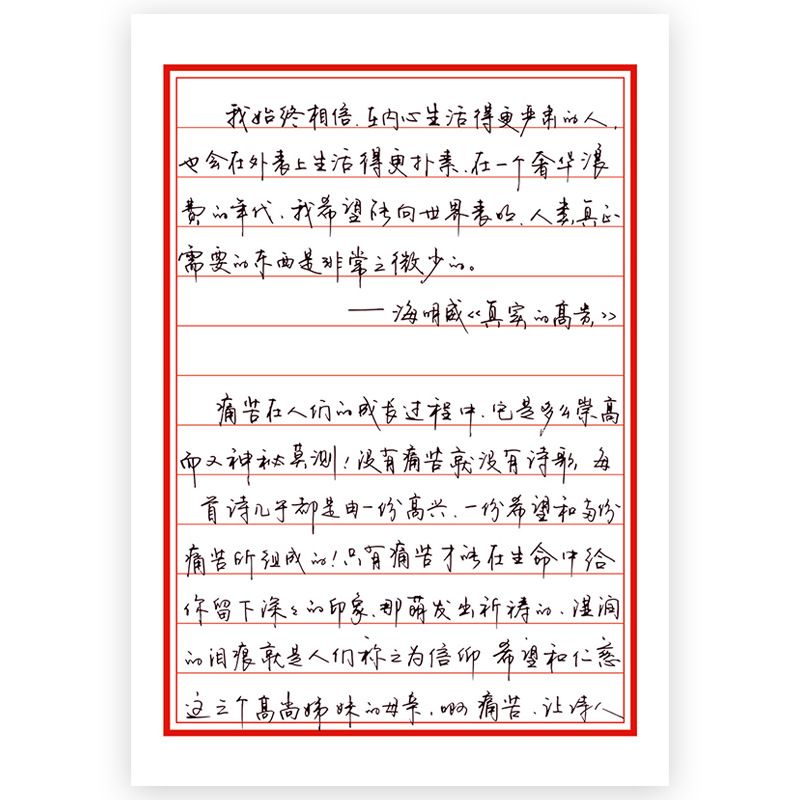 我始终相信、在内心生活得更严肃的人,
也会在外表上生活得更扑素、在一个奢华浪
费的年代、我希望能向世界表明、人类真正
需要的东西是非常之微少的。
——海明威《真实的高贵》
痛苦在人们的成长过程中、它是多么崇高
而又神秘莫测!没有痛苦就没有诗歌,每
首诗几乎都是由一份高兴、一份希望和两份
痛苦所组成的!只有痛苦才能在生命中给
你留下深々的印象、那萌发出祈祷的、湿润
的泪痕就是人们称之为信仰 希望和仁慈
这三个高尚姊妹的母亲、啊 痛苦、让诗人